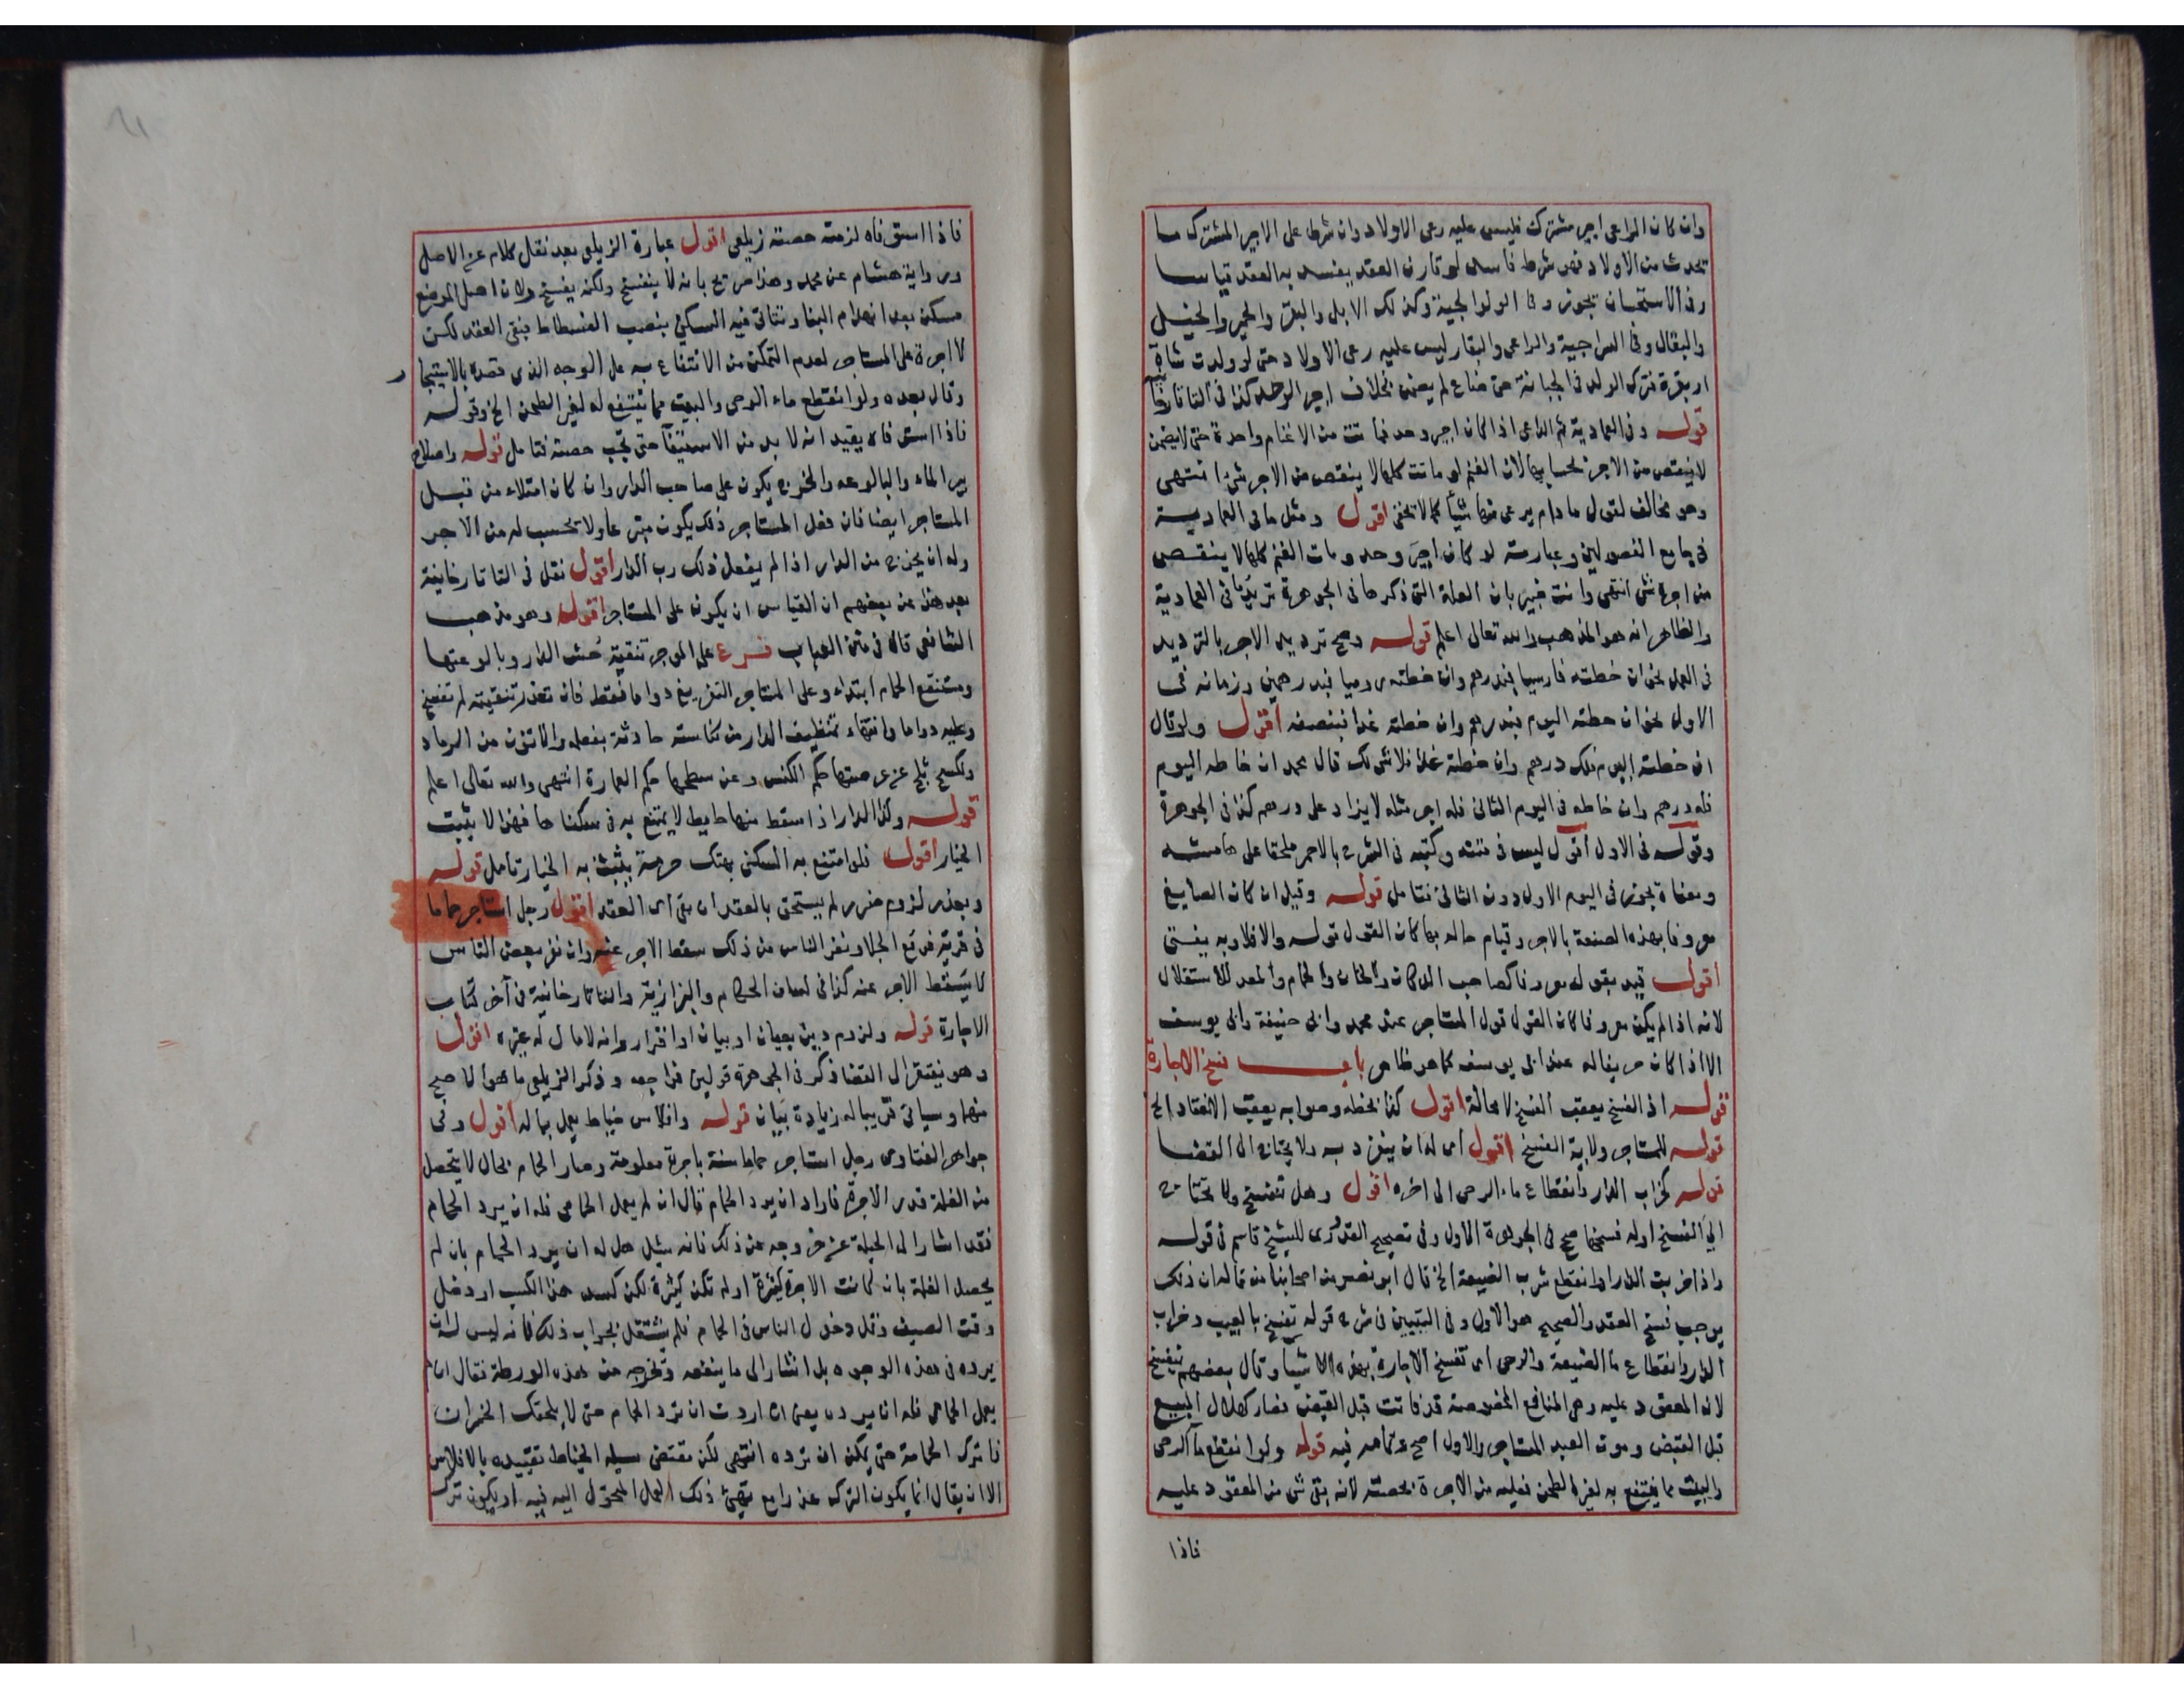 وان كان الراعي اجير مشترك فليس عليه رعي الاولاد وان شرط على الاجير المشترك ما
يحدث من الاولاد فهو شرط فاسد لو قارن العقد يفسد به العقد قياسا
وفي الاستحسان يجوز وفي الولوالجية وكذلك الابل والبقر والحمير والخيل
والبغال وفي السراجية والراعي والبقار ليس عليه رعي الاولاد حتى لو ولدت شاة
او بقرة فترك الولد في الجبانة حتى ضاع لم يضمن بخلاف اجير الوحد كذا في التاتارخانية
قوله وفي العمادية ثم الراعي اذا كان اجير وحد فماتت من الاغنام واحدة حتى لا يضمن
لا ينقص من الاجر بحسابها لان الغنم لو ماتت كلها لا ينقص من الاجر شئ انتهى
وهو مخالف لقول ما دام يرعى منها شيأ كما لا يخفى اقول ومثل ما في العمادية
في جامع الفصولين وعبارته لو كان اجير وحد ومات الغنم كلها لا ينقص
من اجره شئ انتهى وانت خبير بان العلة التي ذكرها في الجوهرة تريد ما في العمادية
والظاهر انه هو المذهب والله تعالى اعلم قوله وصح ترديد الاجر بالترديد
في العمل نحو ان خطته فارسيا فبدرهم وان خطته روميا فبدرهمين وزمانه في
الاول نحو ان خطته اليوم فبدرهم وان خطته غدا فبنصفه اقول ولو قال
ان خطته اليوم فلك درهم وان خطته غدا فلا شئ لك قال محمد ان خاطه اليوم
فله درهم وان خاطه في اليوم الثاني فله اجر مثله لا يزاد على درهم كذا في الجوهرة
وقوله في الاول اقول ليس في متنه وكتبه في الشرح بالاحمر ملحقا على هامشه
ومعناه يجوز في اليوم الاول دون الثاني فتامل قوله وقيل ان كان الصايغ
معروفا بهذه الصنعة بالاجر وقيام حاله بها كان القول قوله والا فلا وبه يفتى
اقول قيد بقوله معروفا كصاحب الدكان والخان والحمام والمعد للاستغلال
لانه اذا لم يكن معروفا كان القول قول المستاجر عند محمد وابي حنيفة وابي يوسف
الا اذا كان حريفا له عند ابي يوسف كما هو ظاهر باب فسخ الاجارة
قوله اذ الفسخ يعقب الفسخ لا محالة اقول كذا بخطه وصوابه يعقب الانعقاد الخ
قوله للمستاجر ولاية الفسخ اقول اي له ان ينفرد به ولا يحتاج الى القضا
قوله كخراب الدار وانقطاع ماء الرحى الى اخره اقول وهل تنفسخ ولا يحتاج
الى الفسخ اوله فسخها صح في الجوهرة الاول وفي تصحيح القدوري للشيخ قاسم في قوله
واذا خربت الدار او انقطع شرب الضيعة الخ قال ابو نصر من اصحابنا من قال ان ذلك
يوجب فسخ العقد والصحيح هو الاول وفي التبيين في شرح قوله تفسخ بالعيب وخراب
الدار وانقطاع ماء الضيعة والرحى اي تفسخ الاجارة بهذه الاشياء وقال بعضهم تنفسخ
لان المعقود عليه وهي المنافع المخصوصة قد فاتت قبل القبض فصار كهلاك المبيع
قبل القبض وموت العبد المستاجر والاول اصح وتمامه فيه قوله ولو انقطع ماء الرحى
والبيت مما ينتفع به لغير الطحن فعليه من الاجرة بحصته لانه بقي شئ من المعقود عليه
فاذا
فاذا استوفاه لزمته حصته زيلعي اقول عبارة الزيلعي بعد نقل كلام عن الاصل
ورواية هشام عن محمد وهذا صريح بانه لا ينفسخ ولكنه يفسخ ولان اصل الموضع
مسكن بعد انهدام البناء وتتاتى فيه السكنى بنصب الفسطاط فبقى العقد لكن
لا اجرة على المستاجر لعدم التمكن من الانتفاع به على الوجه الذي قصده بالاستيجار
وقال بعده ولو انقطع ماء الرحى والبيت مما ينتفع له لغير الطحن الخ وقوله
فاذا استوفاه يفيد انه لا بد من الاستيفآ حتى تجب حصته فتامل قوله واصلاح
بير الماء والبالوعه والخرج يكون على صاحب الدار وان كان امتلاء من قبل
المستاجر ايضا فان فعل المستاجر ذلك يكون متبرعا ولا تحسب له من الاجر
وله ان يخرج من الدار اذا لم يفعل ذلك رب الدار اقول نقل في التاتارخانية
بعد هذا عن بعضهم ان القياس ان يكون على المستاجر اقول وهو مذهب
الشافعي قال في متن العباب فرع على الموجر تنقية حش الدار وبالوعتها
ومستنقع الحمام ابتداء وعلى المستاجر التفريغ دواما فقط فان تعذر تنقيته لم تنفسخ
وعليه دواما وانتهاء تنظيف الدار من كناسته حادثة بفعله والاتون من الرماد
ولكسح ثلج عن عرصتها حكم الكنس وعن سطحها حكم العمارة انتهى والله تعالى اعلم
قوله وكذا الدار اذا سقط منها حايط لا يمتنع به في سكناها فهذا لا يثبت
الخيار اقول فلو امتنع به السكنى بهتك حرمة يثبت به الخيار تامل قوله
وبعذر لزوم ضرر لم يستحق بالعقد ان بقي اي العقد اقول رجل استاجر حماما
في قرية فوقع الجلا ونفر الناس من ذلك سقط الاجر عنه وان نفر بعض الناس
لا يسقط الاجر عنه كذا في لسان الحكام والبزازية والتاتارخانية في آخر كتاب
الاجارة قوله ولزوم دين بعيان او بيان او اقرار وانه لا مال له غيره اقول
وهو يفتقر الى القضا ذكر في الجوهرة قولين فراجعه وذكر الزيلعي ما هو الاصح
منهما وسياتي قريبا له زيادة بيان قوله وافلاس خياط يعمل بماله اقول وفي
جواهر الفتاوى رجل استاجر حماما سنة باجرة معلومة وصار الحمام بحال لا يتحصل
من الغلة قدر الاجرة فاراد ان يرد الحمام فقال ان لم يعمل الحمامي فله ان يرد الحمام
فقد اشار الى الحيلة عن خروجه من ذلك فانه سئل هل له ان يرد الحمام بان لم
يحصل الغلة بان كانت الاجرة كثيرة او لم تكن كثيرة لكن كسد هذا الكسب او دخل
وقت الصيف وقل دخول الناس في الحمام فلم يشتغل بجواب ذلك فانه ليس له ان
يرده في هذه الوجوه بل اشار الى ما ينفعه وتخرجه من هذه الورطة فقال ان لم
يعمل الحمامي فله ان يرده يعني ان اردت ان ترد الحمام حتى لا يلحقك الخسران
فاترك الحمامية حتى يمكن ان ترده انتهى لكن مقتضى مسئلة الخياط تقييده بالافلاس
الا ان يقال انما يكون الترك عن رايع تهيئ ذلك العمل المحول اليه فيه او يكون ترك